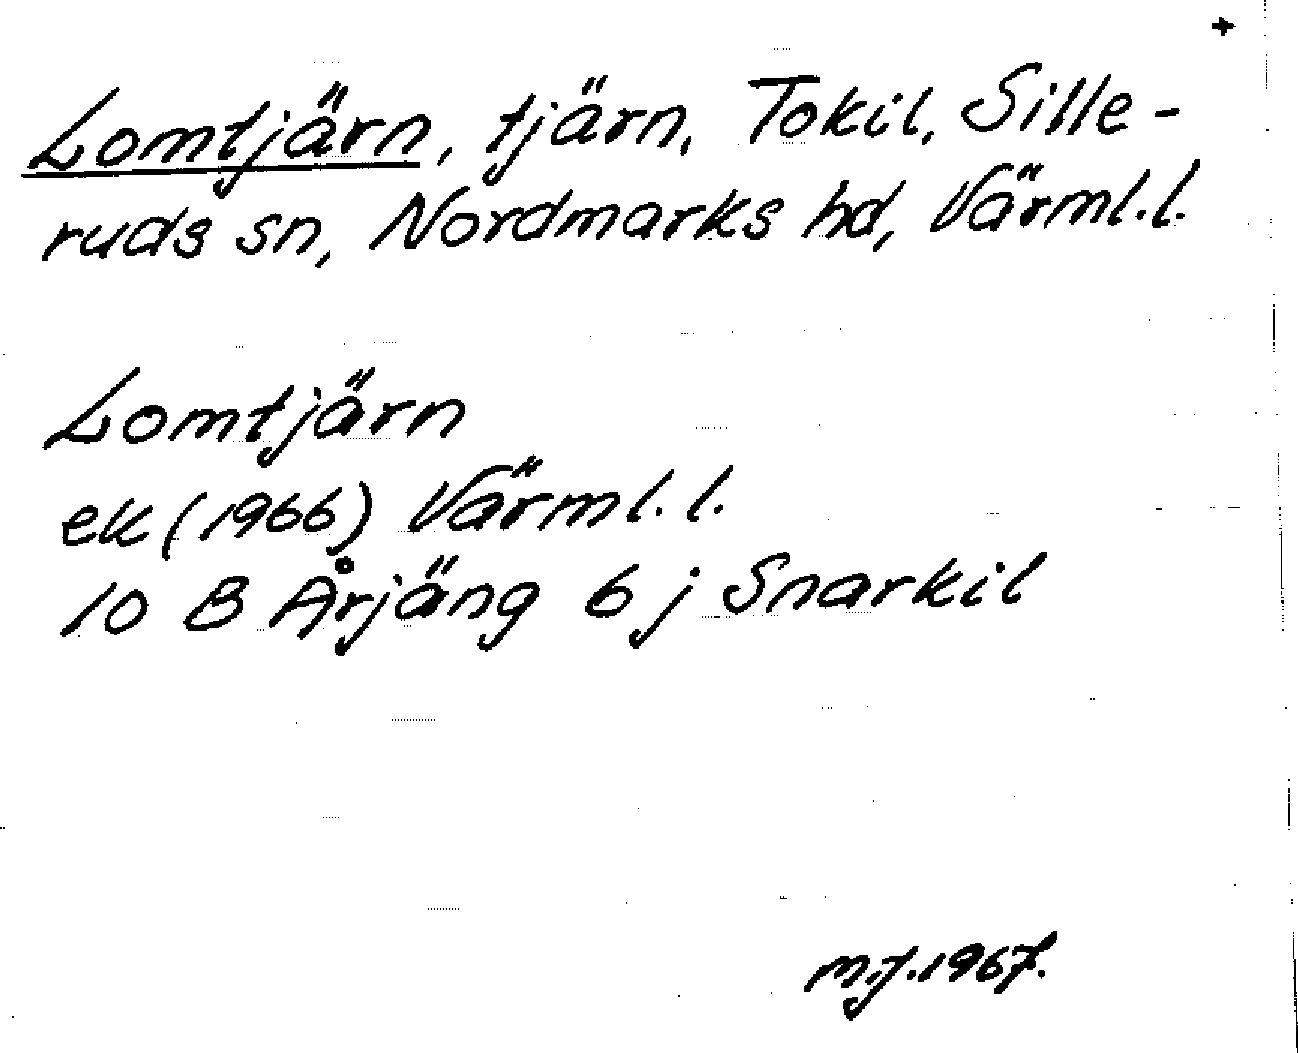 +
Lomtjärn, tjärn, Tokil, Sille-
ruds sn, Nordmarks hd, Värml.l.
Lomtjärn
ek (1966) Värml.l.
10 B Årjäng 6j Snarkil
m.j.1967.